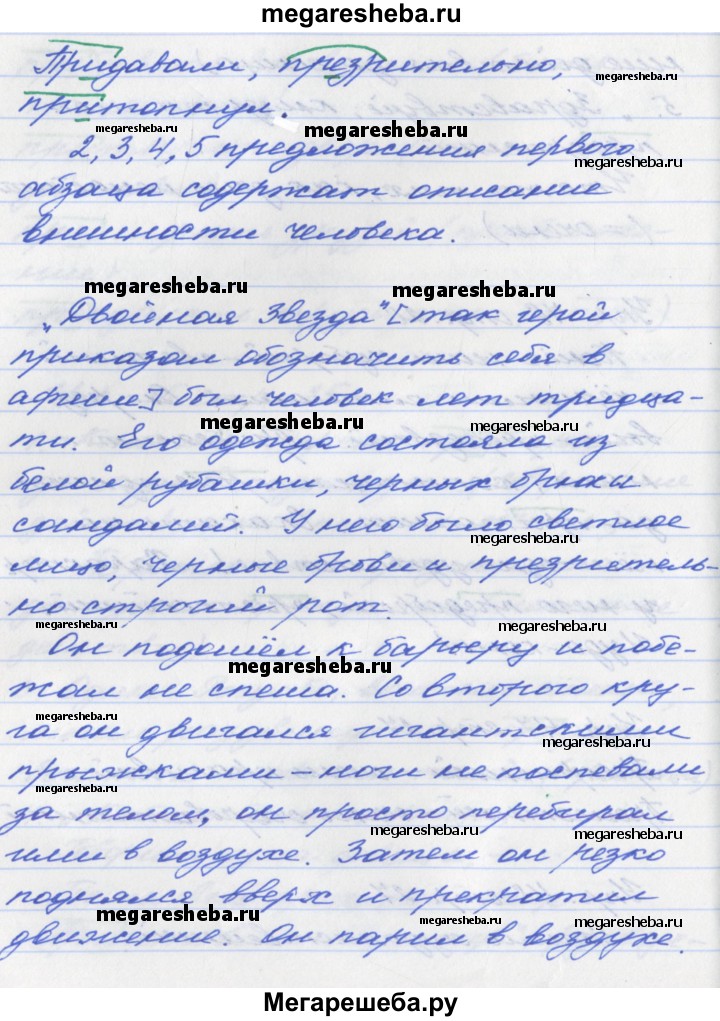 megaresheba.ru
Придавали, презрительно,
megaresheba.ru
притопнул.
megaresheba.ru
megaresheba.ru
2, 3, 4, 5 предложения первого
megaresheba.ru
абзаца содержат описание
внешности человека.
megaresheba.ru
megaresheba.ru
„Двойная Звезда" [так герой
приказал обозначить себя в
афише] был человек лет тридца-
megaresheba.ru
megaresheba.ru
ти. Его одежда состояла из
белой рубашки, черных брюк и
сандалий. У него было светлое
megaresheba.ru
лицо, черные брови и презритель-
но строгий рот.
megaresheba.ru
megaresheba.ru
Он подошёл к барьеру и побе-
megaresheba.ru
жал не спеша. Со второго кру-
megaresheba.ru
га он двигался гигантскими
megaresheba.ru
прыжками – ноги не поспевали
megaresheba.ru
за телом, он просто перебирал
megaresheba.ru
megaresheba.ru
ими в воздухе. Затем он резко
поднялся вверх и прекратил
megaresheba.ru
megaresheba.ru
megaresheba.ru
движение. Он парил в воздухе.
Мегарешеба.ру